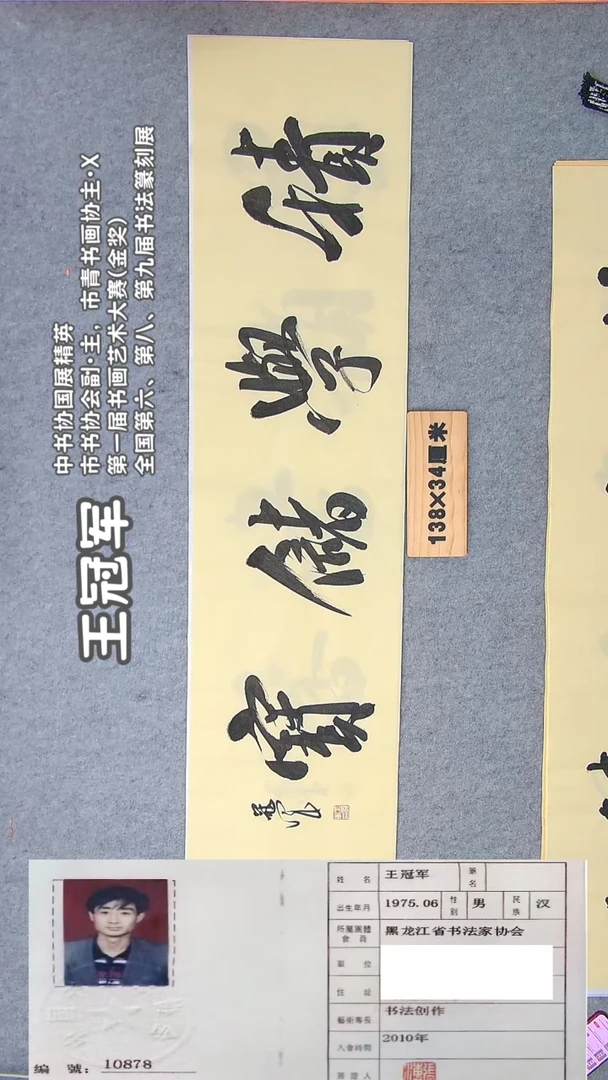 中书协国展精英
市书协会副·主,市青书画协主·X
第一届书画艺术大赛(金奖)
全国第六、第八、第九届书法篆刻展
王冠军
積學儲寶
冠军
138×34厘米
姓名 王冠军 筆名
出生年月 1975.06 性别 男 民族 汉
所屬團體 黑龙江省书法家协会
會員
職位
住址
藝術專長 书法创作
入會時間 2010年
簽證人
编號:10878